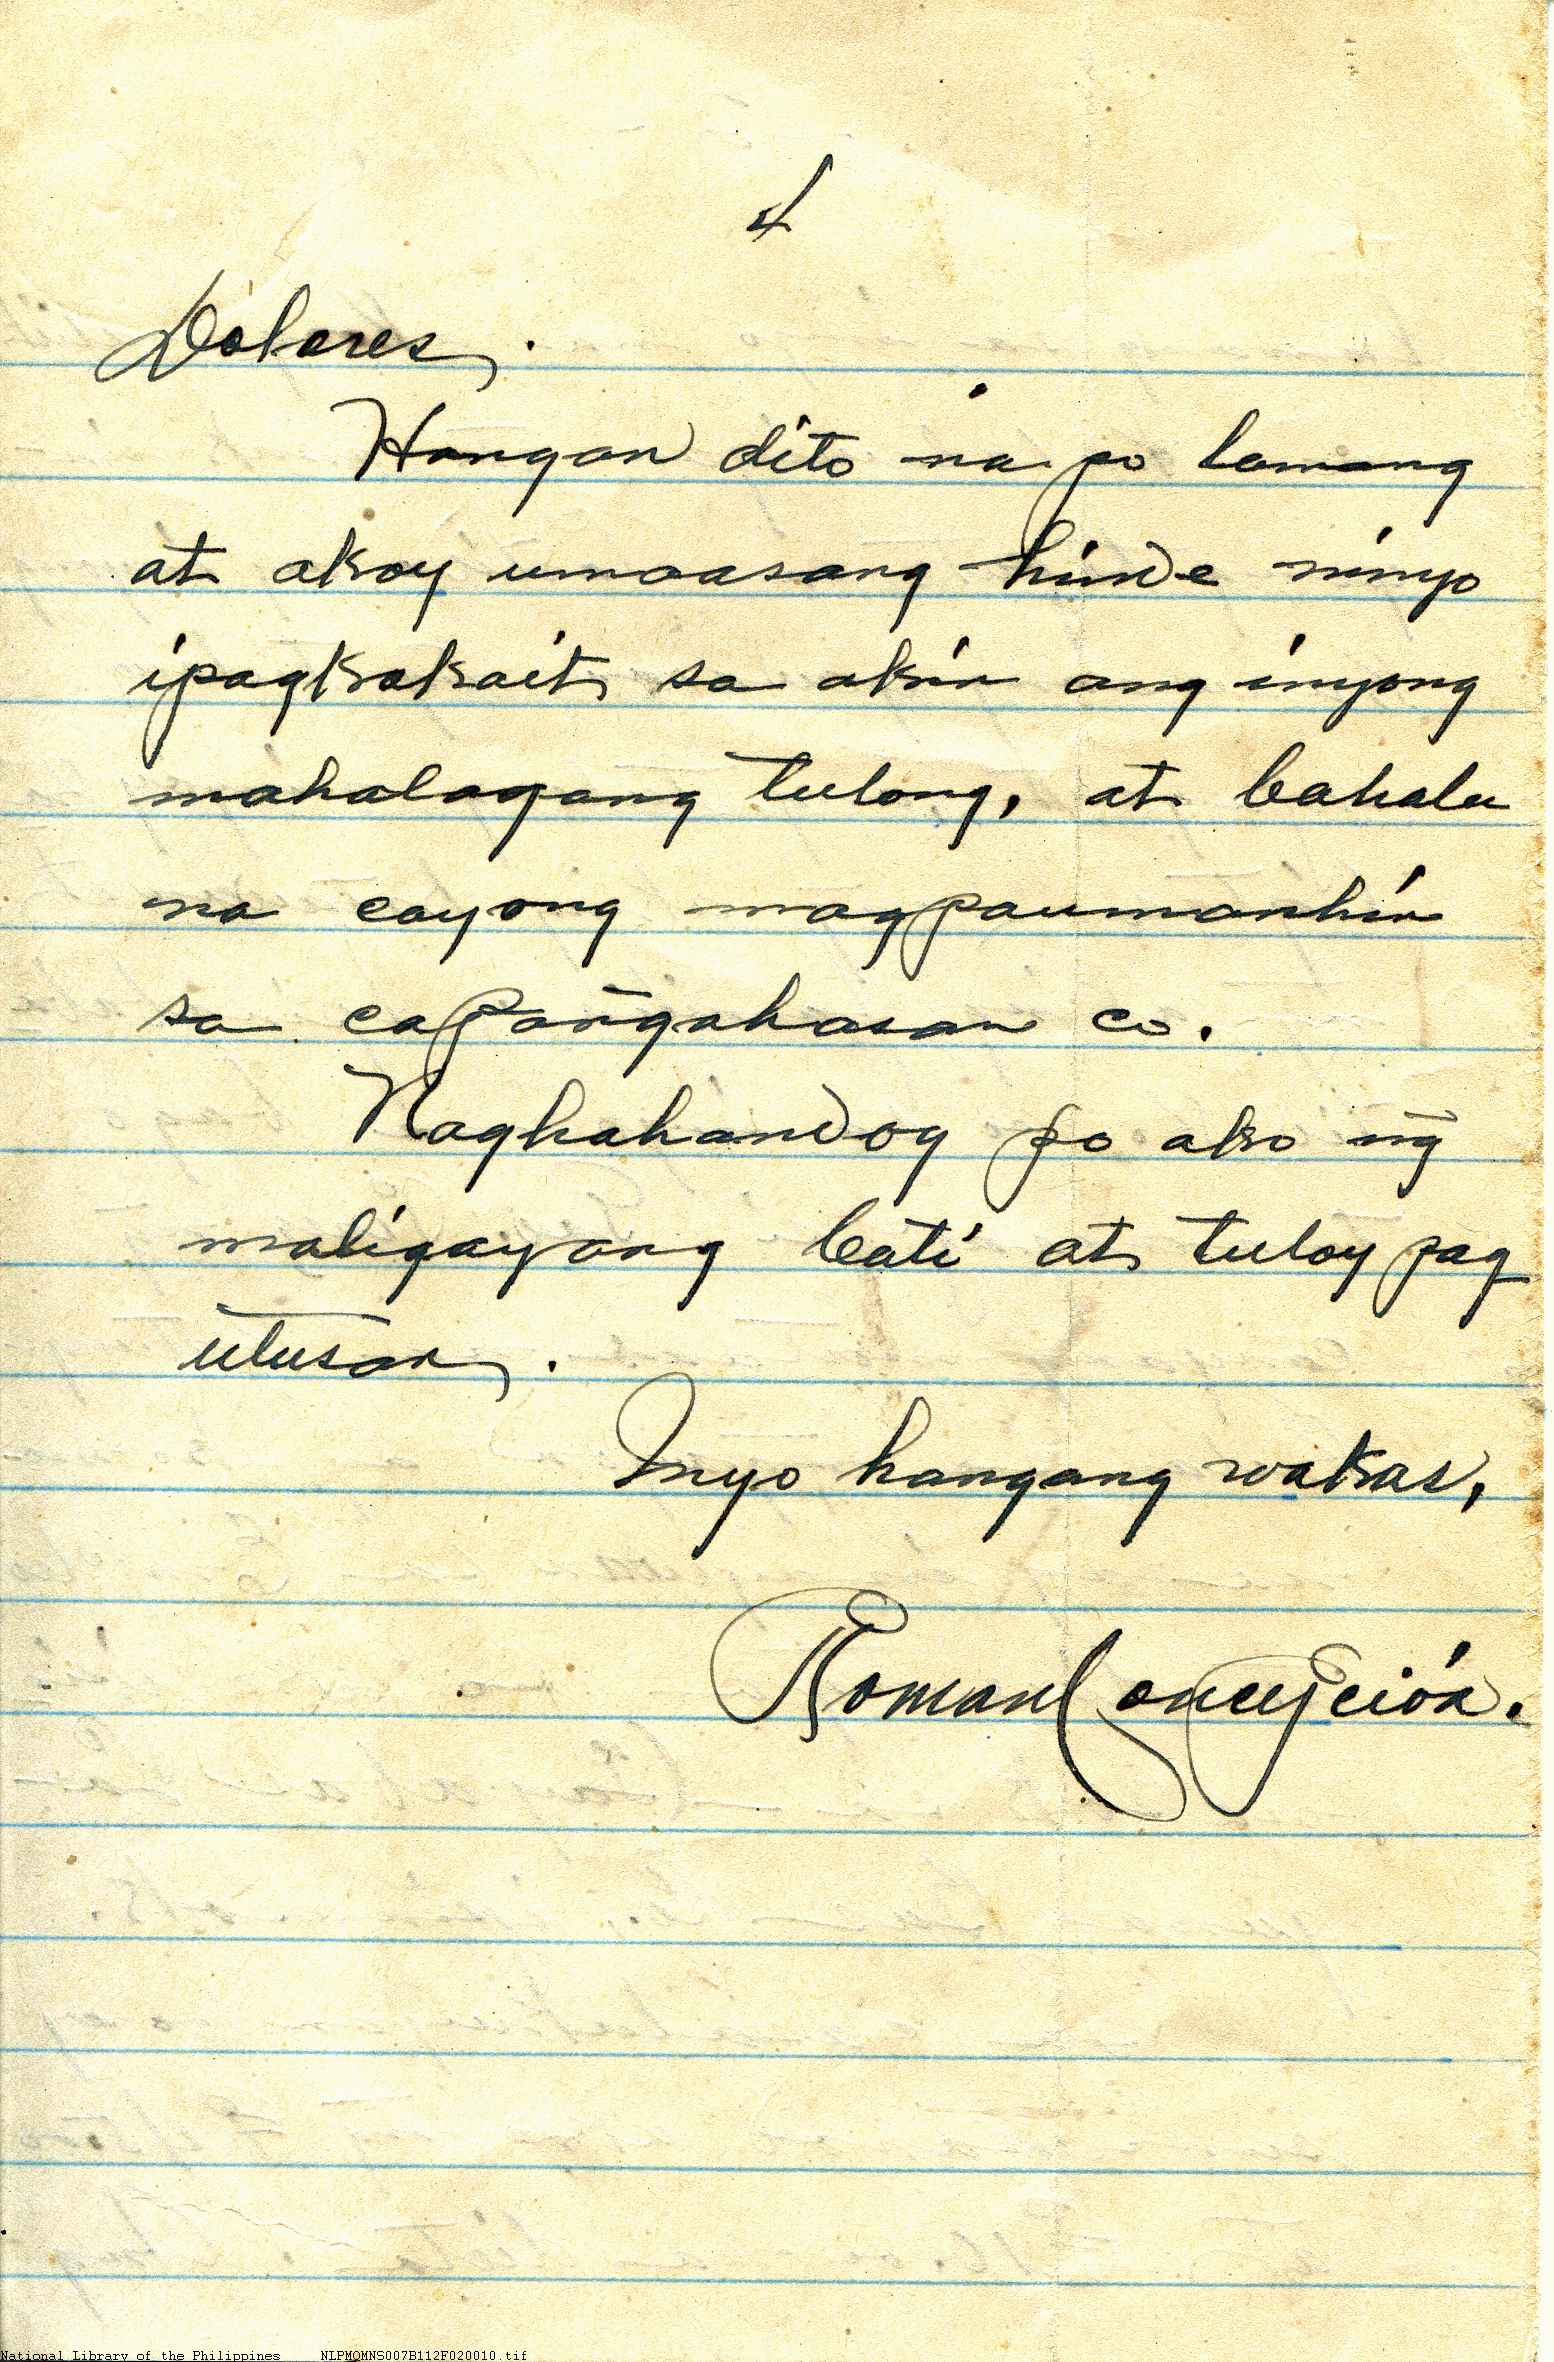 4
Dolores.
Hangan dito na po lamang
at akoy umaasang hinde ninyo
ipagkakait sa akin ang inyong
mahalagang tulong, at bahala
na cayong magpaumanhin
sa capang̃ahasan co.
Naghahandog po ako ng̃
maligayang bati at tuloy pag
utusan.
Inyo hangang wakas,
Roman Concepción.
National Library of the Philippines NLPMQMNS007B112F020010.tif